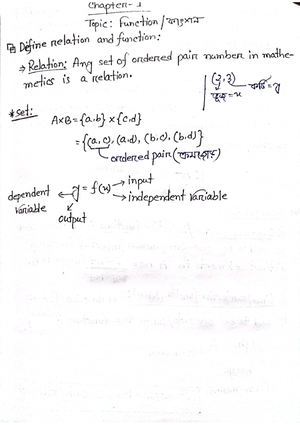 Chapter-1
Topic: Function/
Define relation and function:
→ Relation: Any set of ordered pair number in mathe-
metics is a relation.
*set:
A×B = {a,b} × {c,d}
= {(a,c), (a,d), (b,c), (b,d)}
ordered pair (ক্রমজোড়)
dependent variable ← y = f(x) → input
→ independent variable
output